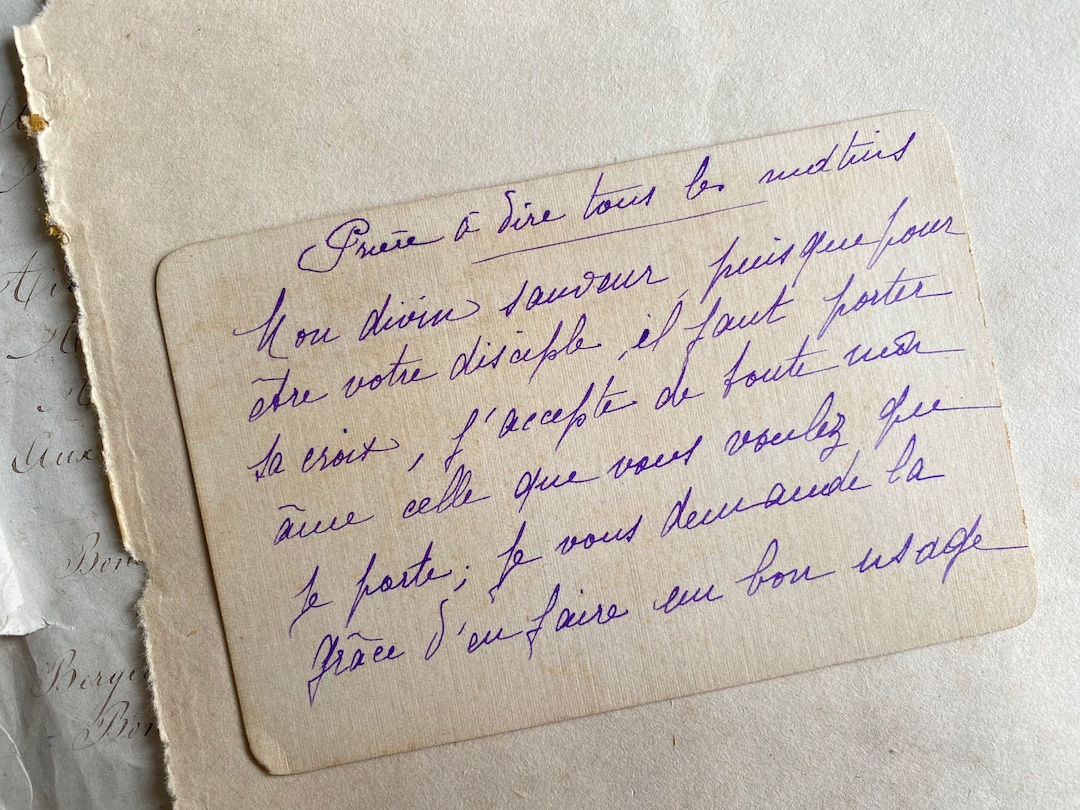 Prière à dire tous les matins
Mon divin sauveur, puisque pour
être votre disciple, il faut porter
sa croix, j'accepte de toute mon
âme celle que vous voulez que
je porte; je vous demande la
grâce d'en faire un bon usage
Aux
Bon
Berge
Bon